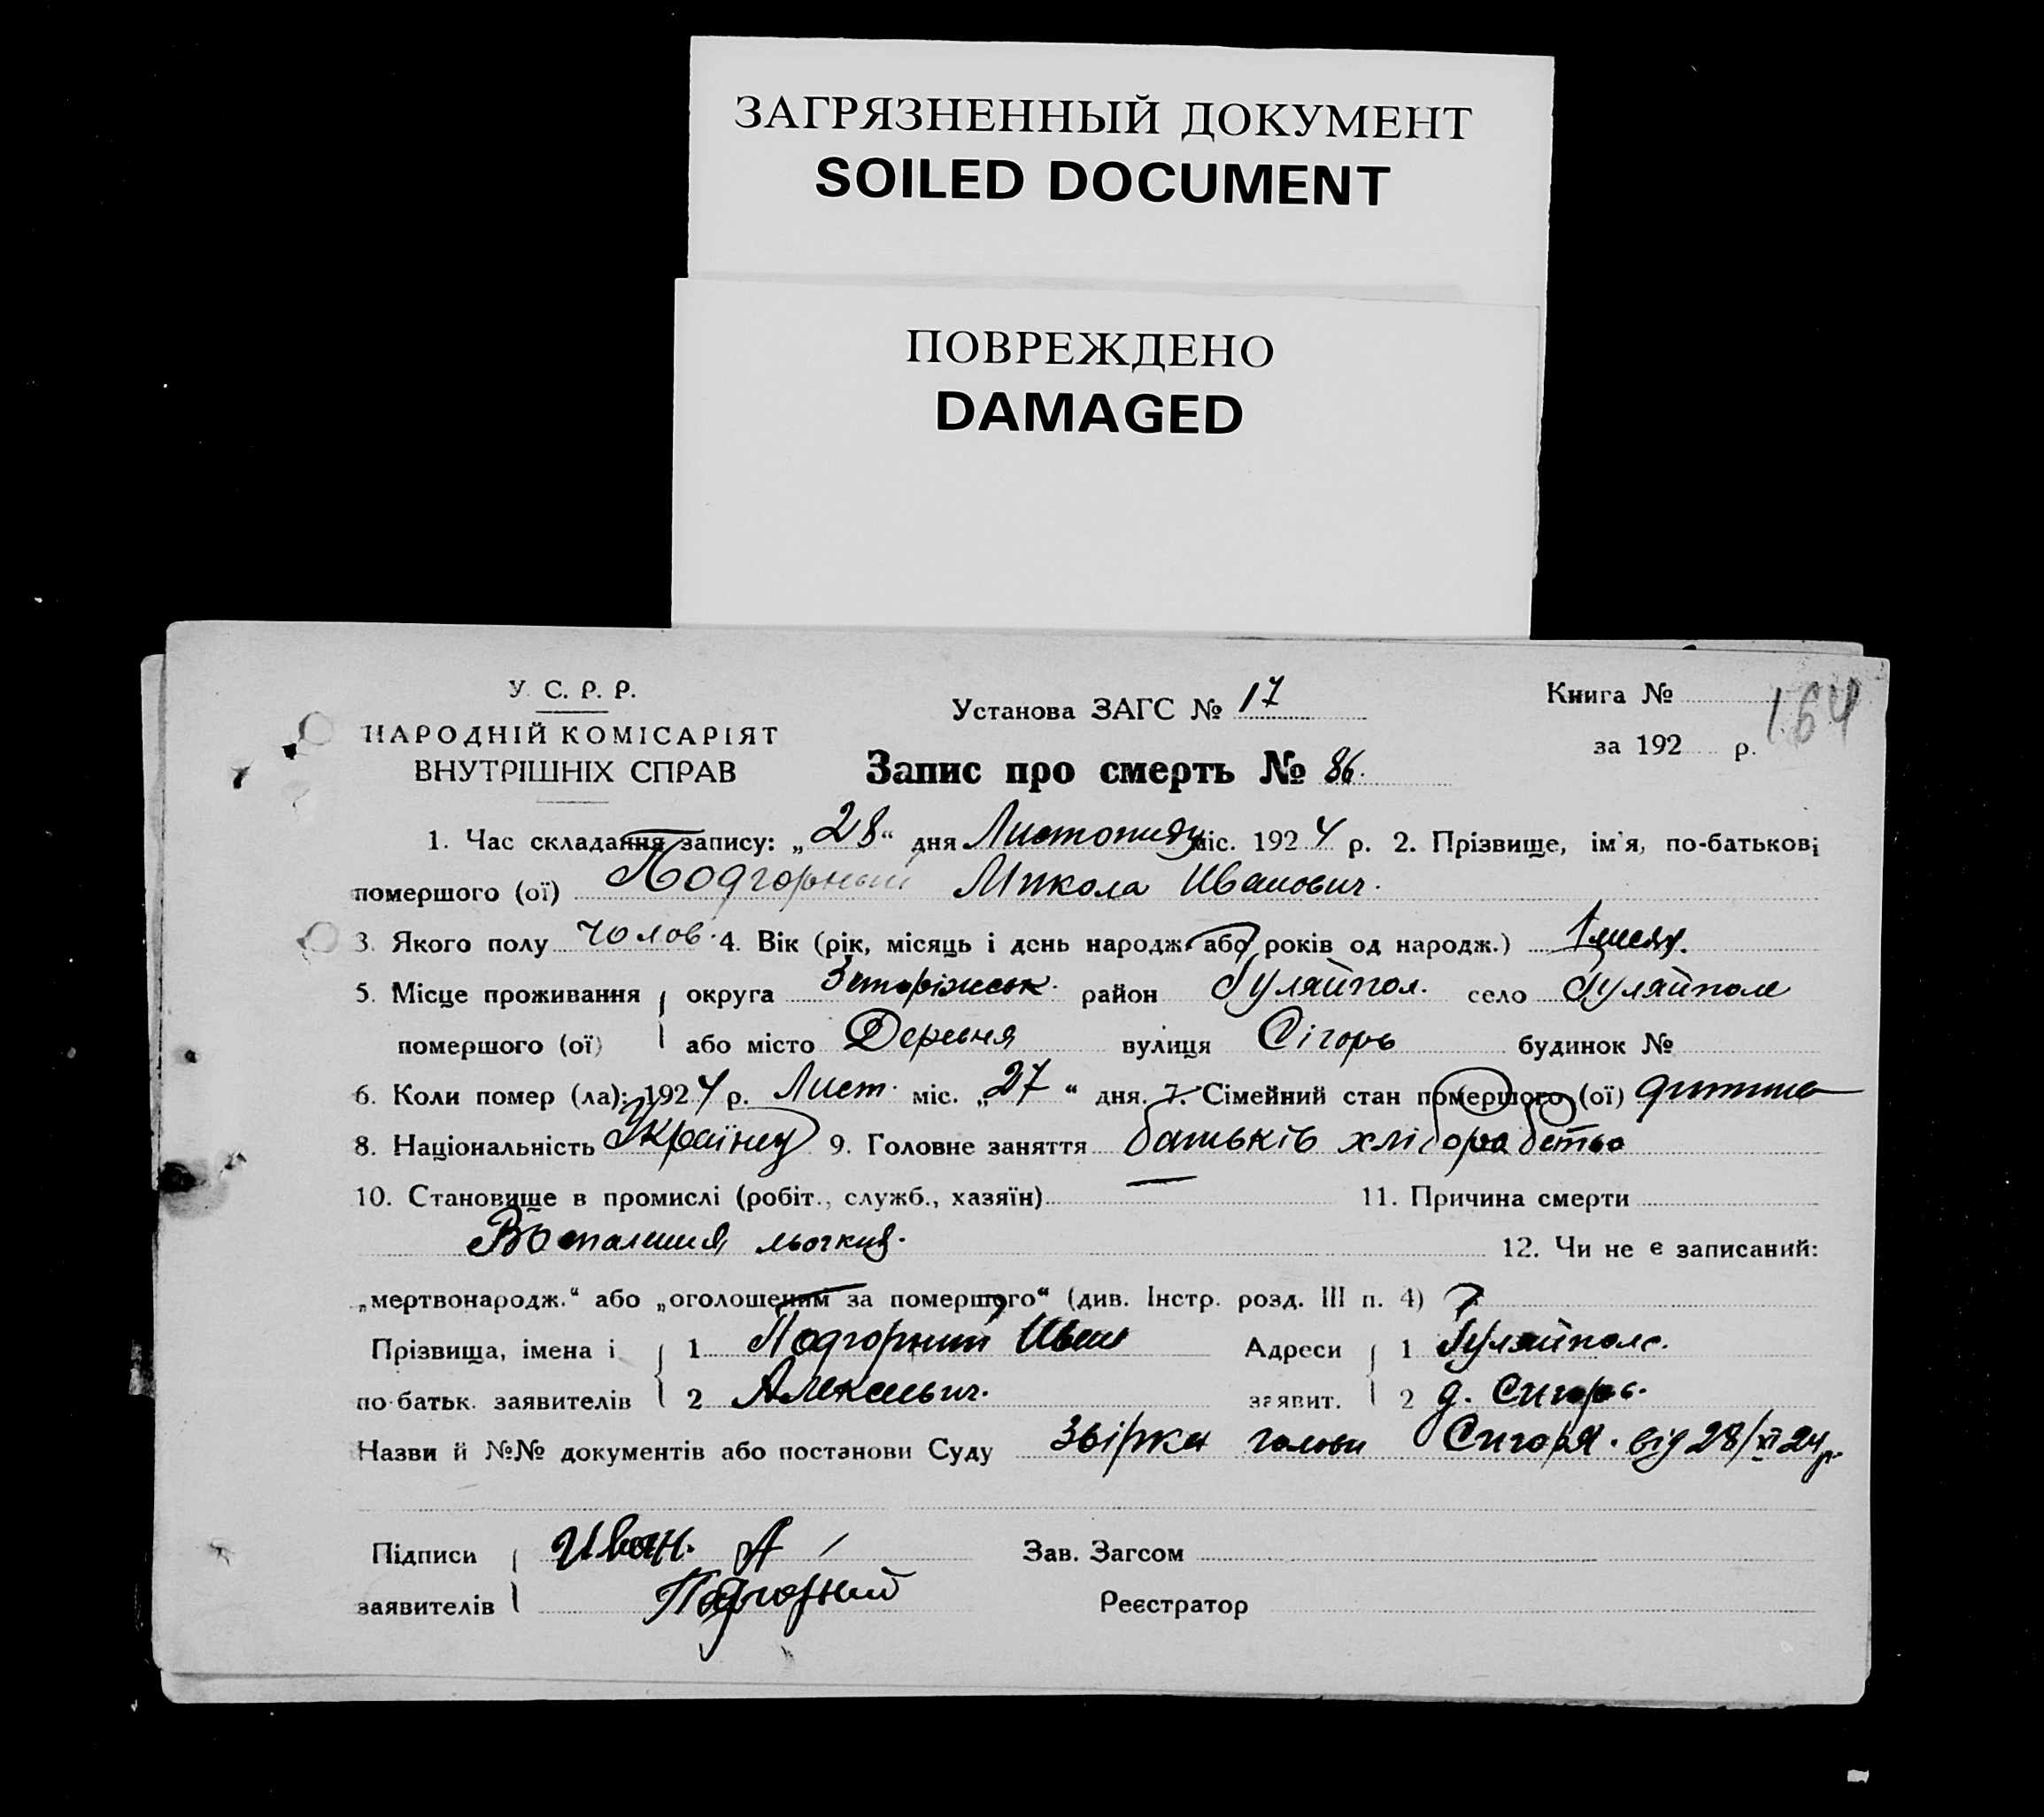 ЗАГРЯЗНЕННЫЙ ДОКУМЕНТ
SOILED DOCUMENT
ПОВРЕЖДЕНО
DAMAGED
У. С. Р. Р.
НАРОДНІЙ КОМІСАРІЯТ
ВНУТРІШНІХ СПРАВ
Установа ЗАГС № 17
Запис про смерть № 86.
Книга №
за 192 р.
164
1. Час складання запису: „28“ дня Листопаду міс. 1924 р. 2. Прізвище, ім'я, по-батькові
помершого (ої) Подгорный Микола Иванович.
3. Якого полу чолов. 4. Вік (рік, місяць і день народж. або років од народж.) 1 месяц.
5. Місце проживання округа район Гуляйпол. село Гуляйполе
помершого (ої) або місто Деревня вулиця Сігорь будинок №
6. Коли помер (ла): 1924 р. Лист. міс. „27“ дня. 7. Сімейний стан помершого (ої) дитина
8. Національність Українец 9. Головне заняття батьків хліборобство
10. Становище в промислі (робіт., служб., хазяїн) — 11. Причина смерти
льогких. 12. Чи не є записаний:
„мертвонародж.“ або „оголошеним за помершого“ (див. Інстр. розд. III п. 4)
Прізвища, імена і 1 Подгорний Иван Адреси 1 Гуляйполе.
по-батьк. заявителів 2 Алексеевич. заявит. 2 д. Сигорь.
Назви й №№ документів або постанови Суду голови Сигоря. від 28/XI 24 р.
Підписи Иван. А
заявителів Подгорний
Зав. Загсом
Реєстратор